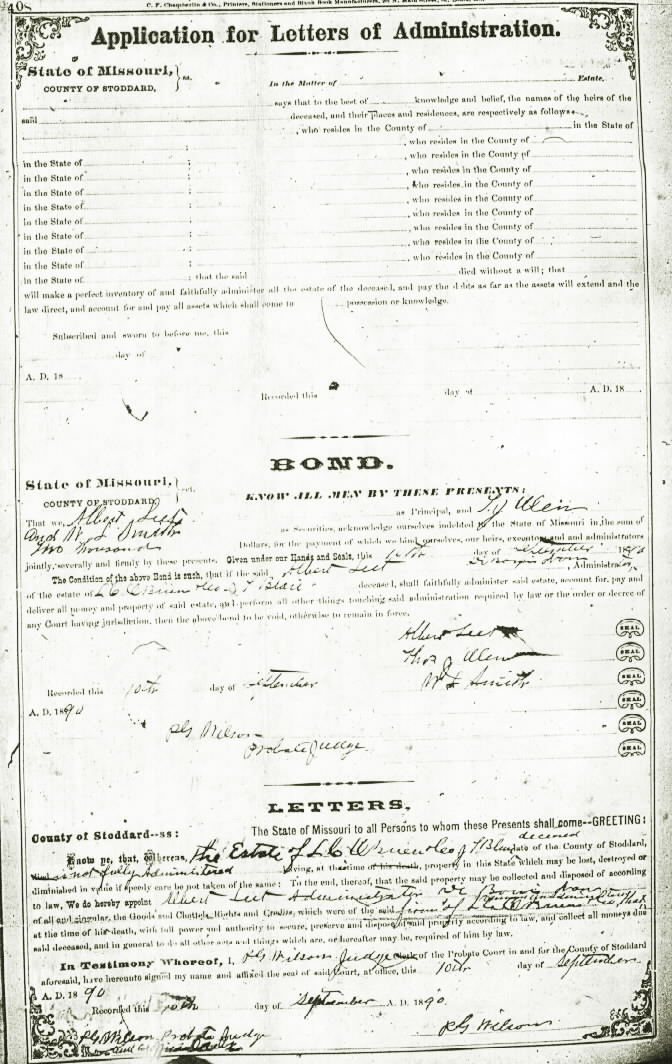 408
C. F. Chamberlin & Co., Printers, Stationers and Blank Book Manufacturers,
Application for Letters of Administration.
State of Missouri, } ss.
COUNTY OF STODDARD,
In the Matter of Estate.
says that to the best of knowledge and belief, the names of the heirs of the
said deceased, and their places and residences, are respectively as follows
, who resides in the County of in the State of
, who resides in the County of
in the State of ; , who resides in the County of
in the State of ; , who resides in the County of
in the State of ; , who resides in the County of
in the State of ; , who resides in the County of
in the State of ; , who resides in the County of
in the State of ; , who resides in the County of
in the State of ; , who resides in the County of
in the State of ; , who resides in the County of
in the State of ; that the said died without a will; that
will make a perfect inventory of and faithfully administer all the estate of the deceased, and pay the debts as far as the assets will extend and the
law direct, and account for and pay all assets which shall come to possession or knowledge.
Subscribed and sworn to before me, this
day of
A. D. 18
Recorded this day of A. D. 18
BOND.
State of Missouri, } sct.
COUNTY OF STODDARD,
KNOW ALL MEN BY THESE PRESENTS:
That we, Albert Leet as Principal, and T. J. Ulen
and W L Smith as Securities, acknowledge ourselves indebted to the State of Missouri in the sum of
Two Thousands Dollars, for the payment of which we bind ourselves, our heirs, executors and administrators
jointly, severally and firmly by these presents. Given under our Hands and Seals, this 10th day of September 1890
The Condition of the above Bond is such, that if the said Albert Leet Administrator,
of the estate of deceased, shall faithfully administer said estate, account for, pay and
deliver all money and property of said estate, and perform all other things touching said administration required by law or the order or decree of
any Court having jurisdiction, then the above bond to be void, otherwise to remain in force.
Albert Leet SEAL
Thos J Ulen SEAL
W L Smith SEAL
SEAL
SEAL
SEAL
Recorded this 10th day of September
A. D. 1890
P G Wilson
Probate Judge
LETTERS.
County of Stoddard--ss: The State of Missouri to all Persons to whom these Presents shall come--GREETING:
deceased
Know ye, that, Whereas, The Estate of late of the County of Stoddard,
is not fully Administered having, at the time of his death, property in this State which may be lost, destroyed or
diminished in value if speedy care be not taken of the same: To the end, therefor, that the said property may be collected and disposed of according
to law, We do hereby appoint Albert Leet Administrator de Bonis Non
of all and singular, the Goods and Chattels, Rights and Credits, which were of the said
at the time of his death, with full power and authority to secure, preserve and dispose of said property according to law, and collect all moneys due
said deceased, and in general to do all other acts and things which are, or hereafter may be, required of him by law.
In Testimony Whereof, I, P G Wilson Judge Clerk of the Probate Court in and for the County of Stoddard
aforesaid, have hereunto signed my name and affixed the seal of said Court, at office, this 10th day of September
A. D. 1890
Recorded this 10th day of September A. D. 1890.
P G Wilson Probate Judge P G Wilson